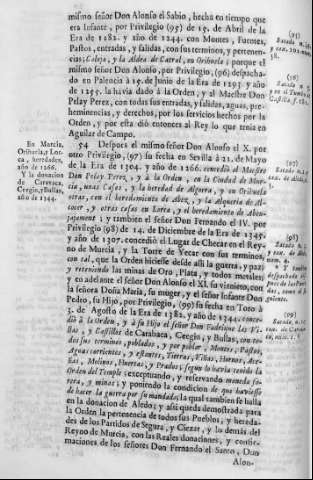 mismo señor Don Alonso el Sabio, hecha en tiempo que
era Infante, por Privilegio (95) de 15. de Abril de la
Era de 1282. y año de 1244. con Montes, Fuentes,
Pastos, entradas, y salidas, con sus terminos, y pertenen-
cias; Calejo, y la Aldea de Carral, en Orihuela; porque el
mismo señor Don Alonso, por Privilegio, (96) despacha-
do en Palencia à 15. de Junio de la Era de 1293. y año
de 1255. la havia dado à la Orden, y al Maestre Don
Pelay Perez, con todas sus entradas, y salidas, aguas, pre-
heminencias, y derechos, por los servicios hechos por la
Orden, y por esta dió entonces al Rey lo que tenia en
Aguilar de Campos.
54 Despues el mismo señor Don Alonso el X. por
otro Privilegio, (97) su fecha en Sevilla à 21. de Mayo
de la Era de 1304. y año de 1266. concedió al Maestre
Don Pelay Perez, y à la Orden, en la Ciudad de Mur-
cia, unas Casas, y la heredad de
otras, con el heredamiento de
y otras casas en Lorca, y el heredamiento de
y tambien el señor Don Fernando el IV. por
Privilegio (98) de 14. de Diciembre de la Era de 1345.
y año de 1307. concedió el Lugar de Checar en el Rey-
no de Murcia, y la Torre de Yecar con sus terminos,
con tal, que la Orden hiciesse desde alli la guerra, y paz;
y reteniendo las minas de Oro, Plata, y todos metales:
y en adelante el señor Don Alonso el XI. su visnieto, con
la señora Doña Maria, su muger, y el señor Infante Don
Pedro, su Hijo, por Privilegio, (99) su fecha en Toro à
3. de Agosto de la Era de 1382. y año de 1344. conce-
dió à la Orden, y à su Hijo el señor Don Fadrique las Vi-
llas, y Castillos de Caravaca, Cregin, y Bullas, con to-
dos sus terminos, poblados, y por poblar, Montes, Pastos,
Aguas corrientes, y estantes, Tierras, Viñas, Hornos, Ace-
ñas, Molinos, Huertas, y Prados; segun lo havia tenido la
Orden del Temple; exceptuando, y reservando moneda fo-
rera, y minas; y poniendo la condicion de que huviesse
de hacer la guerra por su mandado; la qual tambien se halla
en la donacion de Aledo; y assi queda demostrada para
la Orden la pertenencia de todos sus Pueblos, y hereda-
des de los Partidos de Segura, y Ciezar, y lo demás del
Reyno de Murcia, con las Reales donaciones, y confir-
maciones de los señores Don Fernando el Santo, Don
Alon-
En Murcia,
Orihuela, y Lor-
ca, heredades,
año de 1266.
Y la donacion
de Caravaca,
Cregin, y Bullas,
año de 1344.
(95)
(96)
(97)
(98)
(99)